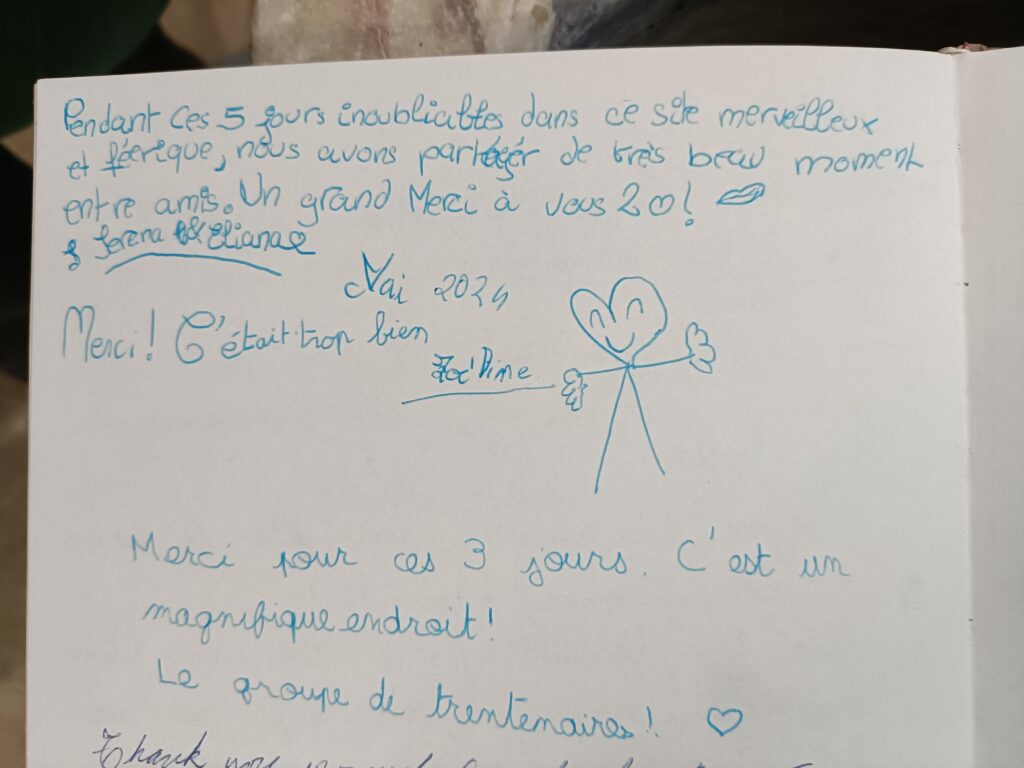 Pendant ces 5 jours inoubliables dans ce site merveilleux
et féerique, nous avons partagér de très beau moment
entre amis. Un grand Merci à vous 20!
Serena & Eliana
Mai 2024
Merci! C'était trop bien
Merci pour ces 3 jours. C'est un
magnifique endroit!
Le groupe de trentenaires!
Thank you